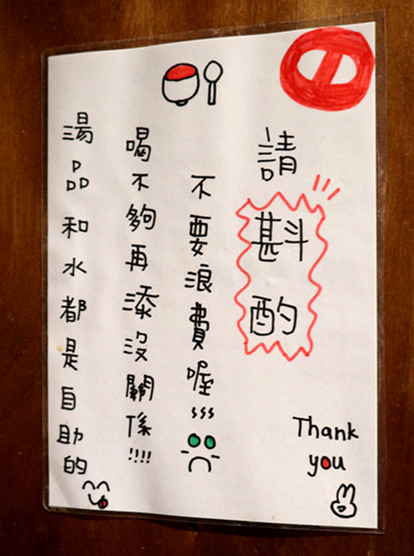 湯品和水都是自助的
喝不夠再添沒關係!!!!
不要浪費喔~~~
請斟酌
Thank
you